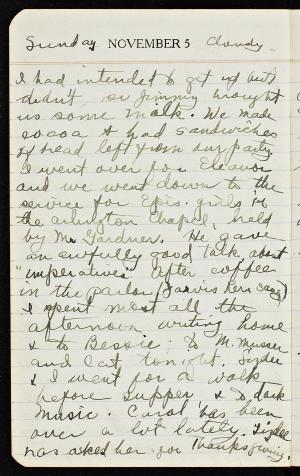 Sunday NOVEMBER 5 Cloudy.
I had intended to get up but
didn't, so Jimmy brought
us some malk. We made
cocoa & had sandwiches
of bread left from our party.
I went over for Eleanor
and we went down to the
service for Epis. girls in
the Arlington Chapel, held
by Mr. Gardner. He gave
an awfully good talk about
"imperatives". After coffee
in the parlor
I spent most all the
afternoon writing home
& to Bessie. To M.
and tonight.
& I went for a walk
before supper, & to dark
music. Carol has been
over a lot lately.
has asked her for Thanksgiving.